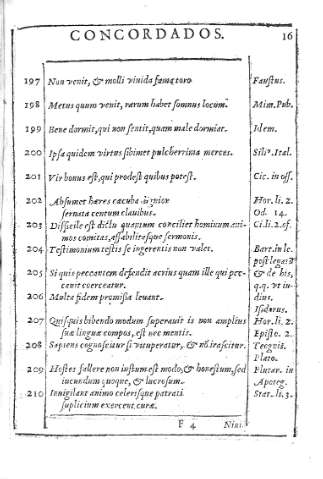 CONCORDADOS. 16
197 Non venit, & molli viuida fama toro Faustus.
198 Metus quum venit, rarum habet somnus locum. Mim. Pub.
199 Bene dormit, qui non sentit, quam male dormiat. Idem.
200 Ipsa quidem virtus sibimet pulcherrima merces. Silº. Ital.
201 Vir bonus est, qui prodest quibus potest. Cic. in off.
202 Absumet hæres cacuba dignior Hor. li. 2.
seruata centum clauibus. Od. 14.
203 Difficile est dictu quantum conciliet hominum ani- Ci. li. 2. of.
mos comitas, affabilitasque sermonis.
204 Testimonium testis se ingerentis non valet. Bart. in le.
post legatū
205 Si quis peccantem defendit acrius quam ille qui pec- & de his,
cauit coerceatur. q.q. vt in-
206 Multa fidem promissa leuant. dius.
Isidorus.
207 Quisquis bibendo modum superauit is non amplius Hor. li. 2.
suæ linguæ compos, est nec mentis. Episto. 2.
208 Sapiens cognoscitur si vituperatur, & nō irascitur. Teognis.
Plato.
209 Hostes fallere non iustum est modo, & honestum, sed Plutar. in
iucundum quoque, & lucrosum. Apoteg.
210 Inuigilant animo celerisque patrati Stat. li. 3.
suplicium exercent curæ.
F 4 Nisi